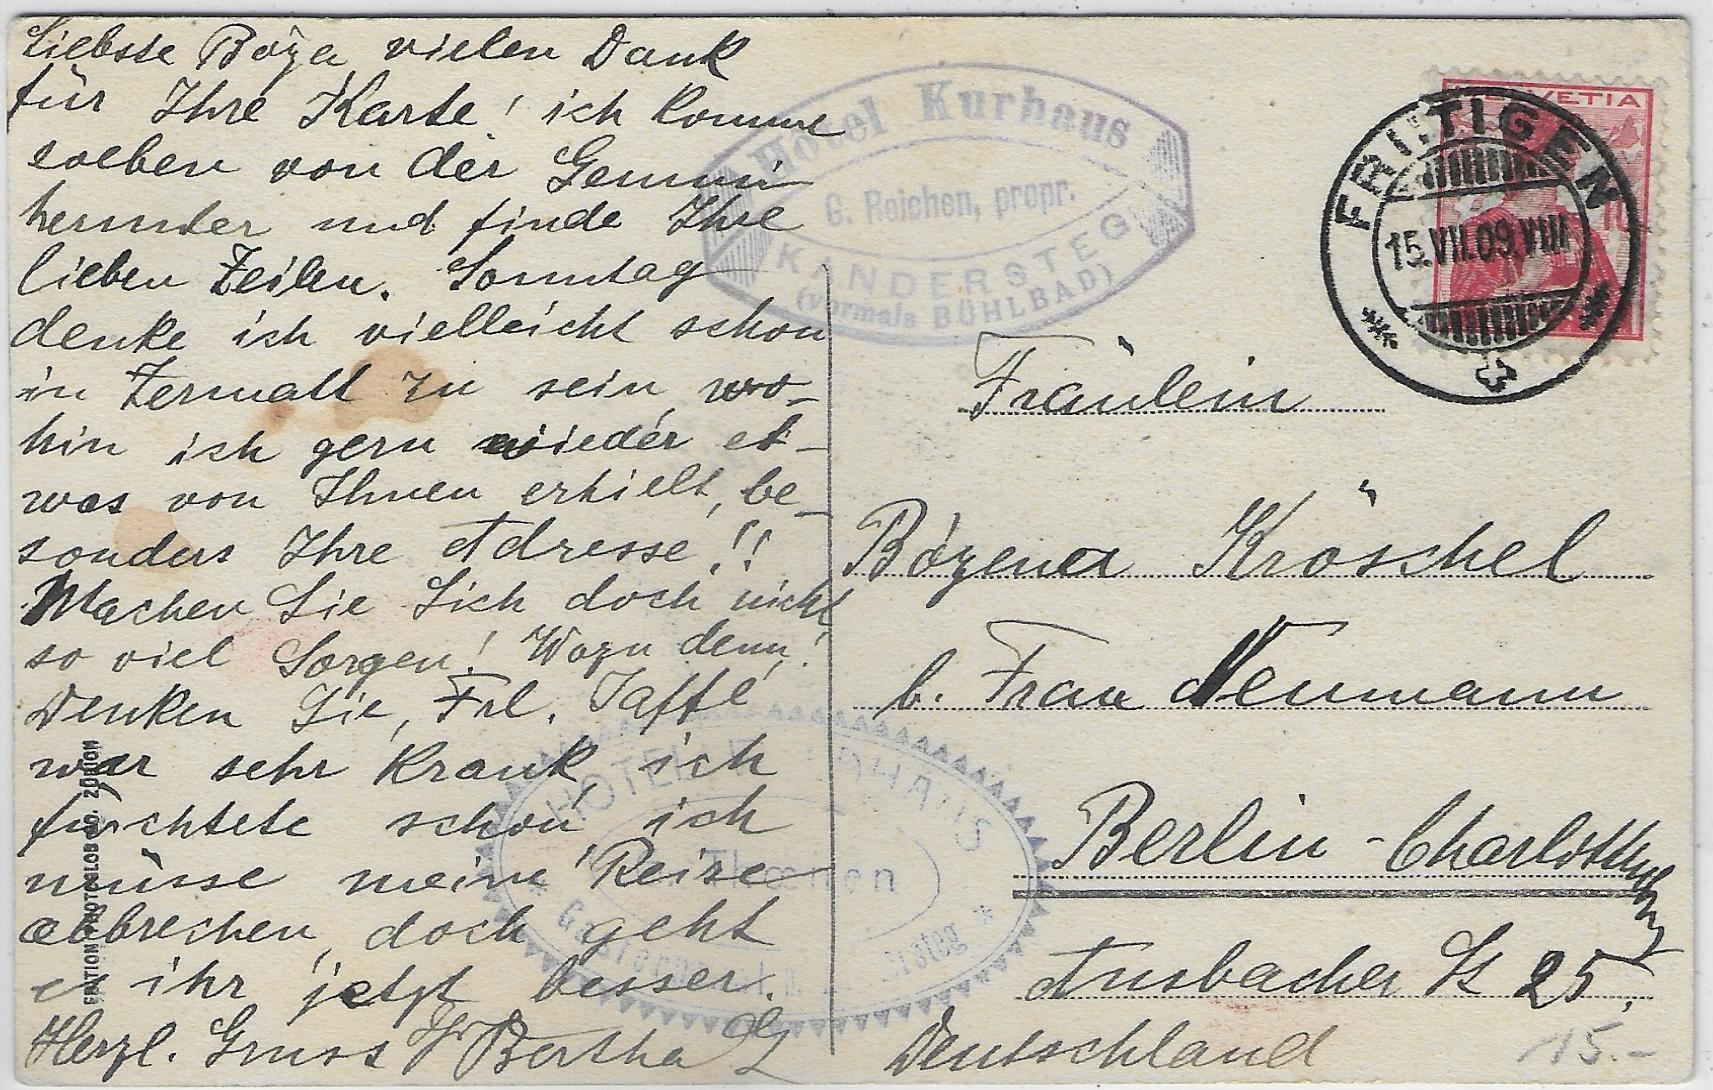 Liebste Boza, vielen Dank
für Ihre Karte! ich komme
soeben von der Gemmi
herunter und finde Ihre
lieben Zeilen. Sonntag
denke ich vielleicht schon
in Zermatt zu sein, wo-
hin ich gern wieder et-
was von Ihnen erhielt, be-
sonders Ihre Adresse!!
Machen Sie Sich doch nicht
so viel Sorgen! Wozu denn!
Denken Sie, Frl. Jaffé
war sehr krank, ich
fürchtete schon ich
müsse meine Reise
abbrechen, doch geht
es ihr jetzt besser.
Herzl. Gruss Ihr Bertha
Hotel Kurhaus
G. Reichen, propr.
KANDERSTEG
(vormals BÜHLBAD)
HELVETIA
FRUTIGEN
15.VII.09.VIII
Fräulein
Bózena Kröschel
b. Frau Neumann
Berlin-Charlottenburg
Ansbacher St 25.
Deutschland
15.-
HOTEL
PHOTOGLOB CO. ZÜRICH